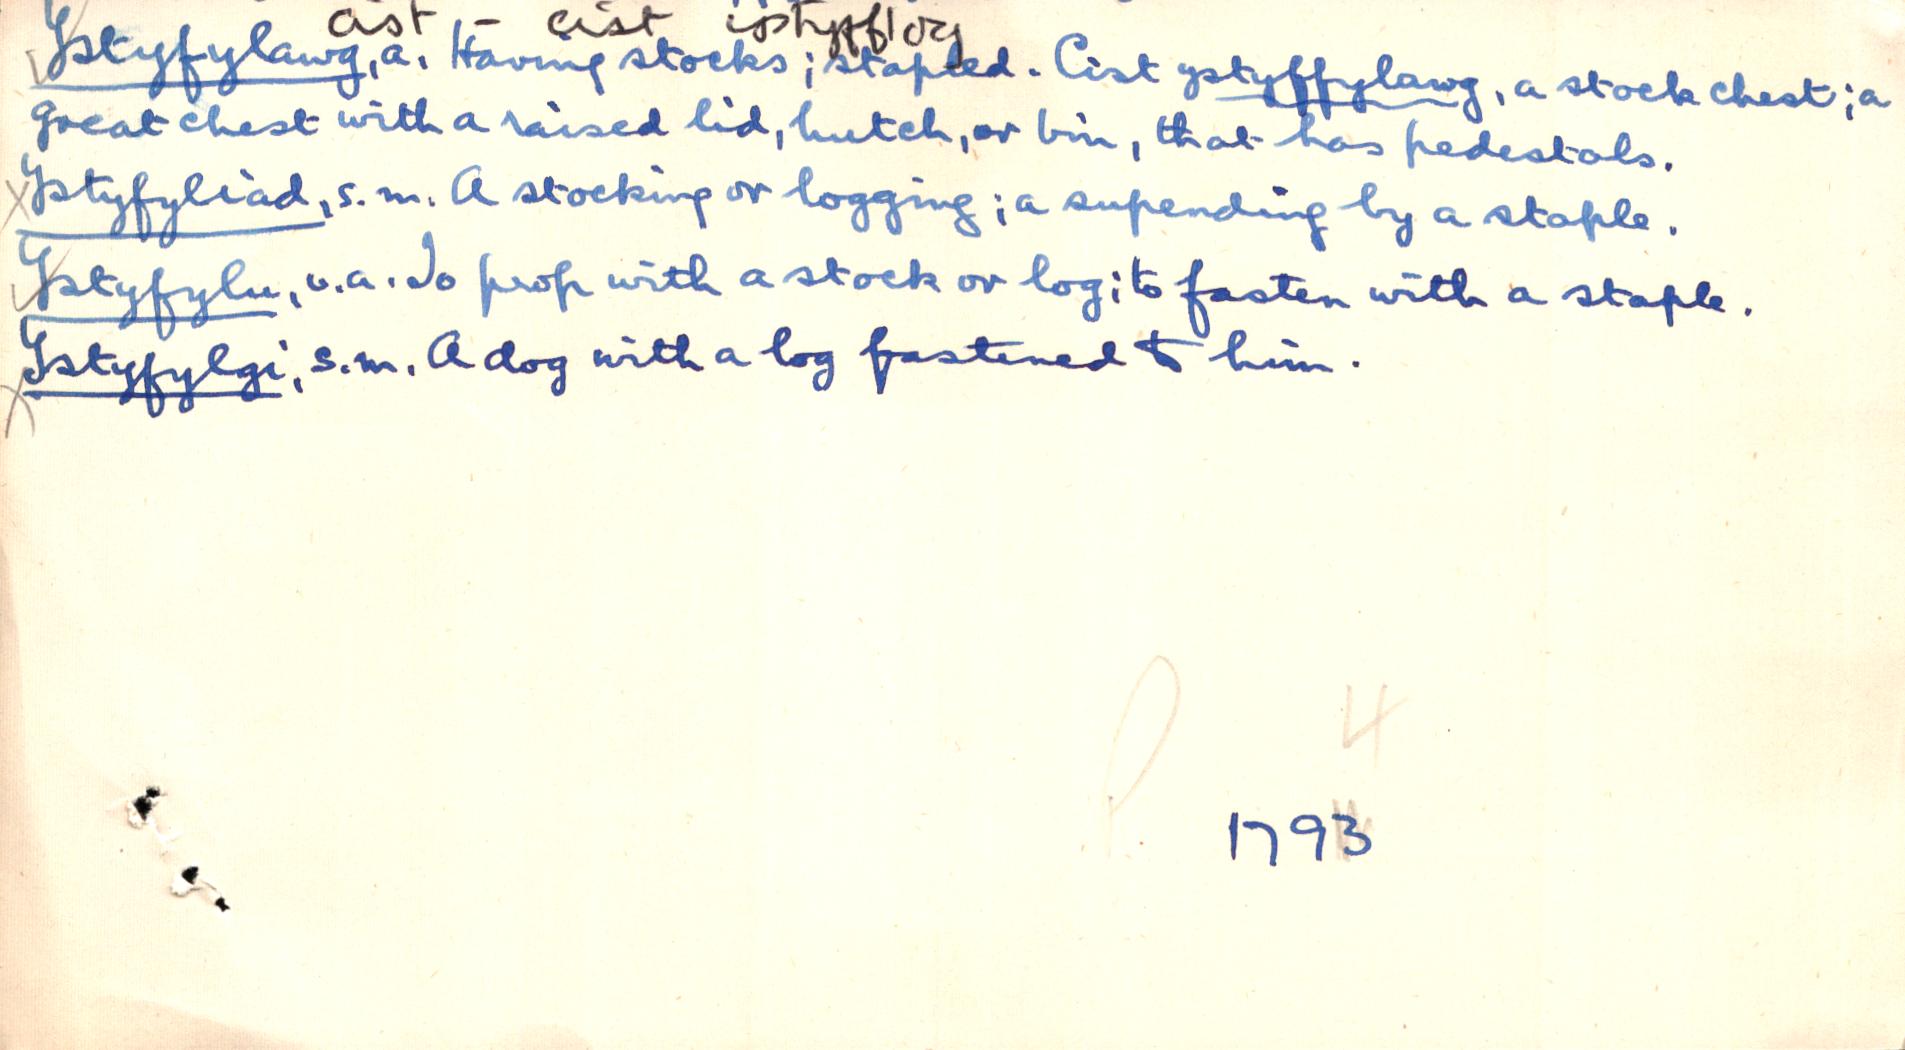 cist - cist ystyfflog
Ystyfylawg, a. Having stocks; stapled. Cist ystyffylawg, a stock chest; a
great chest with a raised lid, hutch, or bin, that has pedestals.
Ystyfyliad, s.m. A stocking or logging; a supending by a staple.
Ystyfylu, v.a. To prop with a stock or log; to fasten with a staple.
Ystyfylgi, s.m. A dog with a log fastened to him.
P 4
1793